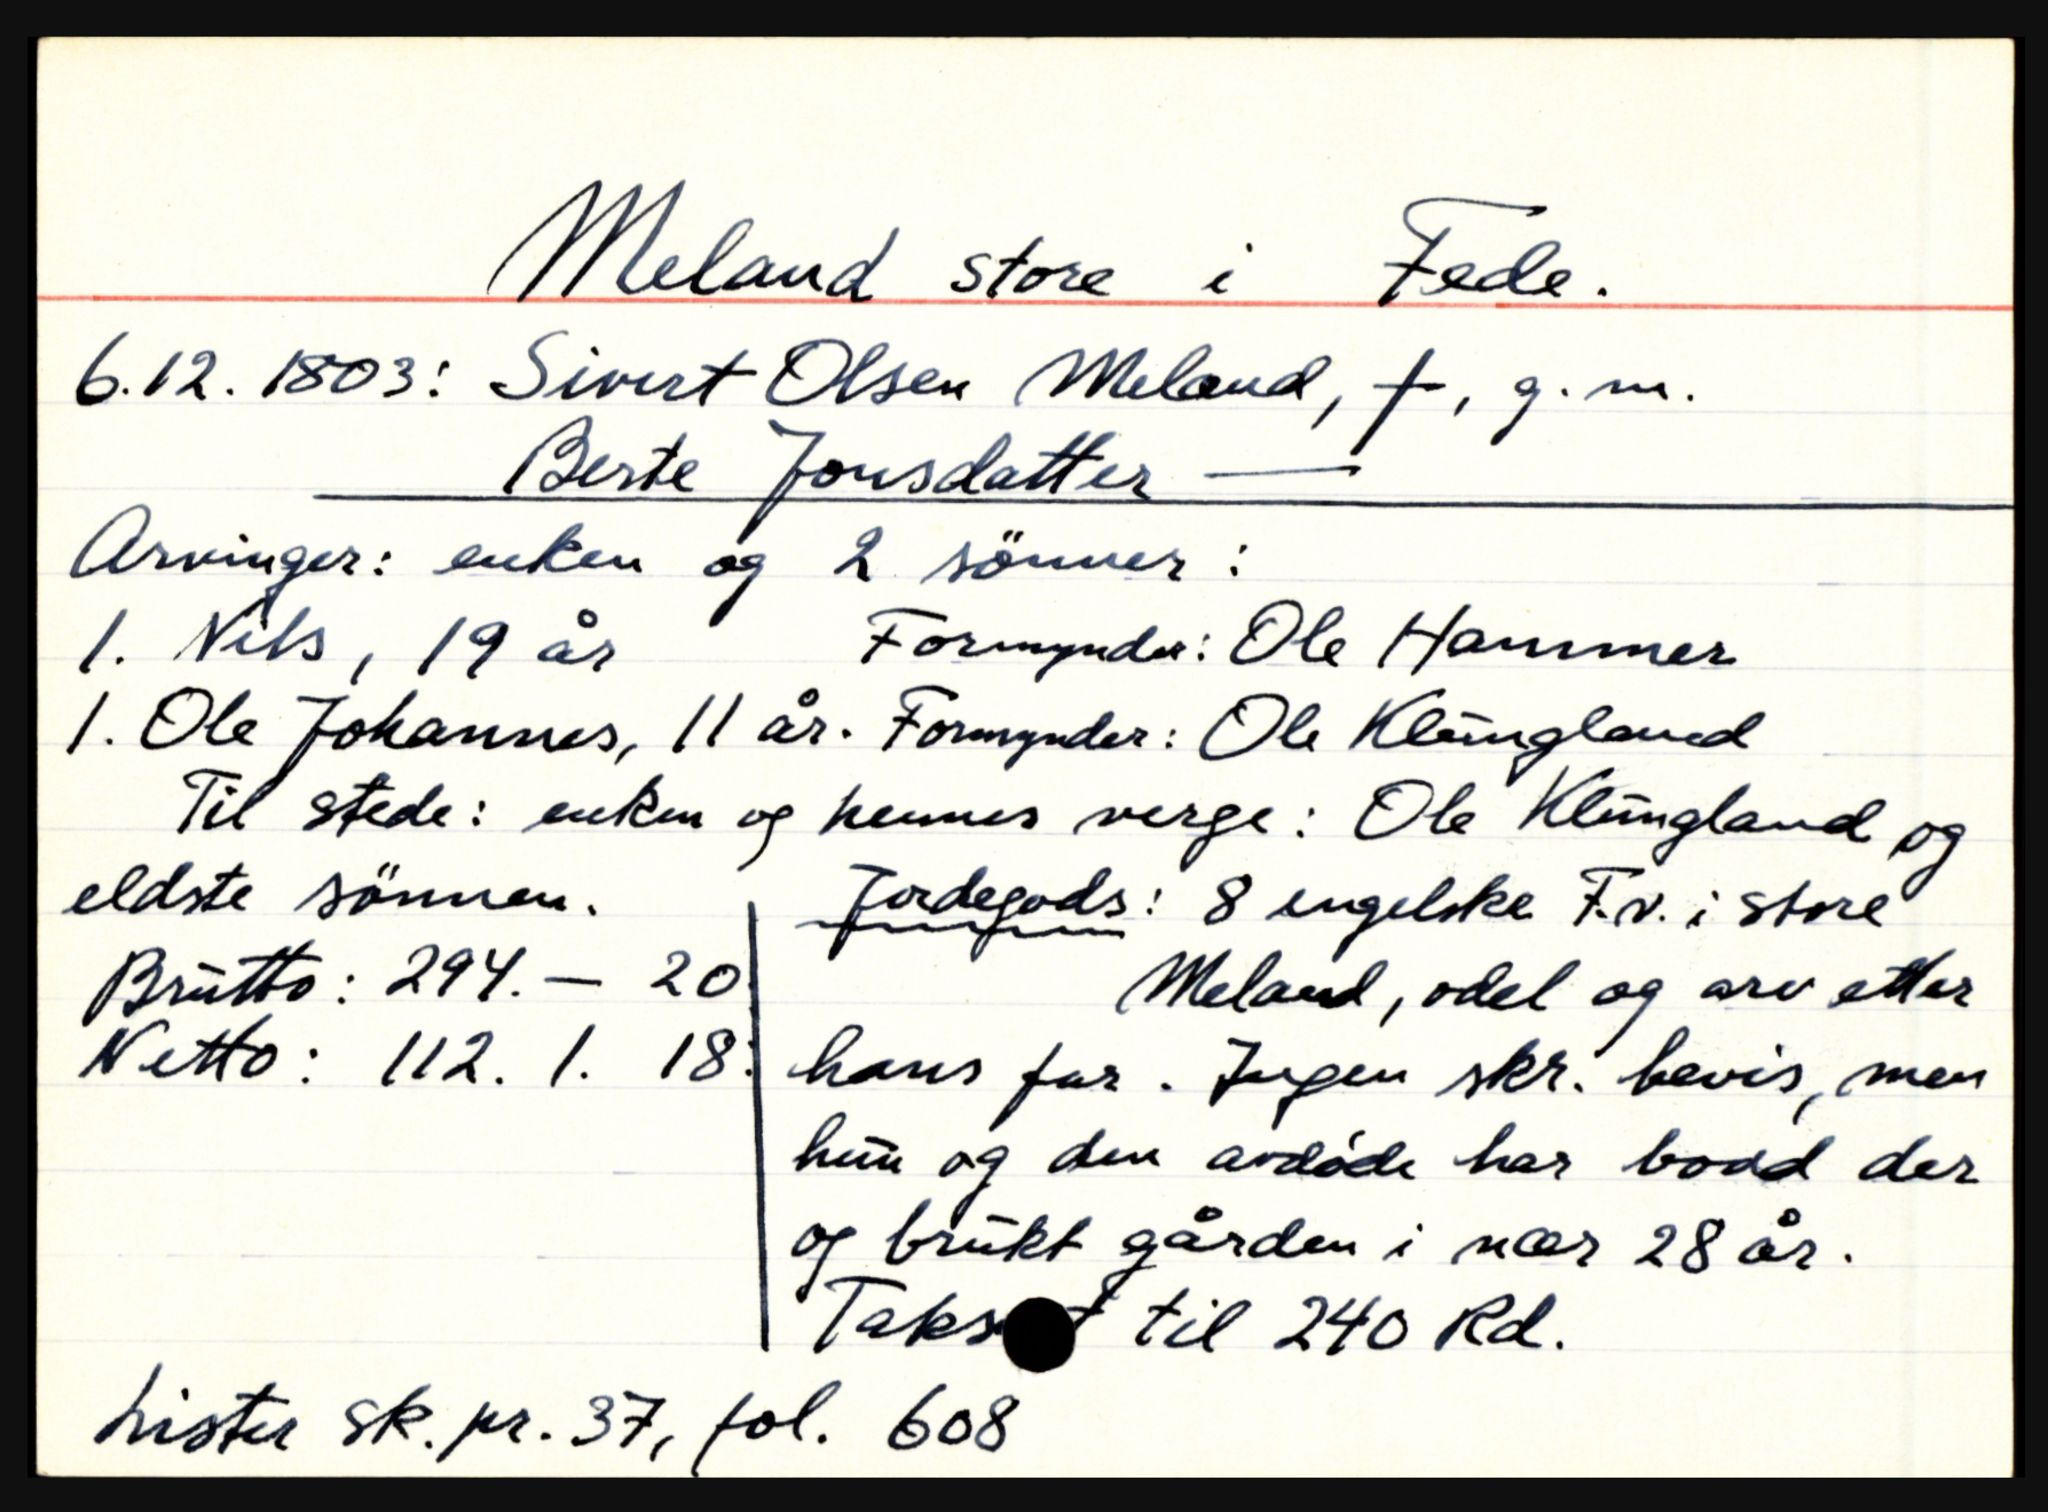 Meland store i Fede.
6.12.1803: Sivert Olsen Meland, †, g.m.
Berte Jonsdatter —
Arvinger: enken og 2 sönner:
1. Nils, 19 år Formynder: Ole Hammer
1. Ole Johannes, 11 år. Formynder: Ole Klungland
Til stede: enken og hennes verge: Ole Klungland og
eldste sönnen.
Brutto: 294. — 20
Netto: 112. 1. 18:
Jordegods: 8 engelske F.v. i store
Meland, odel og arv etter
hans far. Ingen skr. bevis, men
hun og den avdøde har bodd der
og brukt gården i nær 28 år.
til 240 Rd.
Lister sk.pr. 37, fol. 608